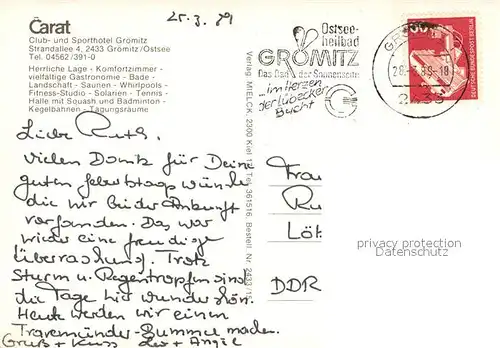 25.3.89
Carat
Club- und Sporthotel Grömitz
Strandallee 4, 2433 Grömitz/Ostsee
Tel. 04562/391-0
Herrliche Lage - Komfortzimmer -
vielfältige Gastronomie - Bade -
Landschaft - Saunen - Whirlpools -
Fitness-Studio - Solarien - Tennis -
Halle mit Squash und Badminton -
Kegelbahnen - Tagungsräume
Liebe Ruth,
vielen Dank für Deine
guten Geburtstagswünsche
die wir bei der Ankunft
vorfanden. Das war
wieder eine freudige
Überraschung. Trotz
Sturm u. Regentropfen sind
die Tage hier wunderschön.
Heute werden wir einen
Travemünder-Bummel machen.
Gruß + Kuss Leo + Angie
Verlag MIELCK, 2300 Kiel 17, Tel. 361516, Bestell. Nr. 2433/
Ostsee-
heilbad
GRÖMITZ
Das Bad der Sonnenseite
...im Herzen
der Lübecker
Bucht
2433
DEUTSCHE BUNDESPOST BERLIN
Frau
Ru
Löb
DDR
privacy protection
Datenschutz